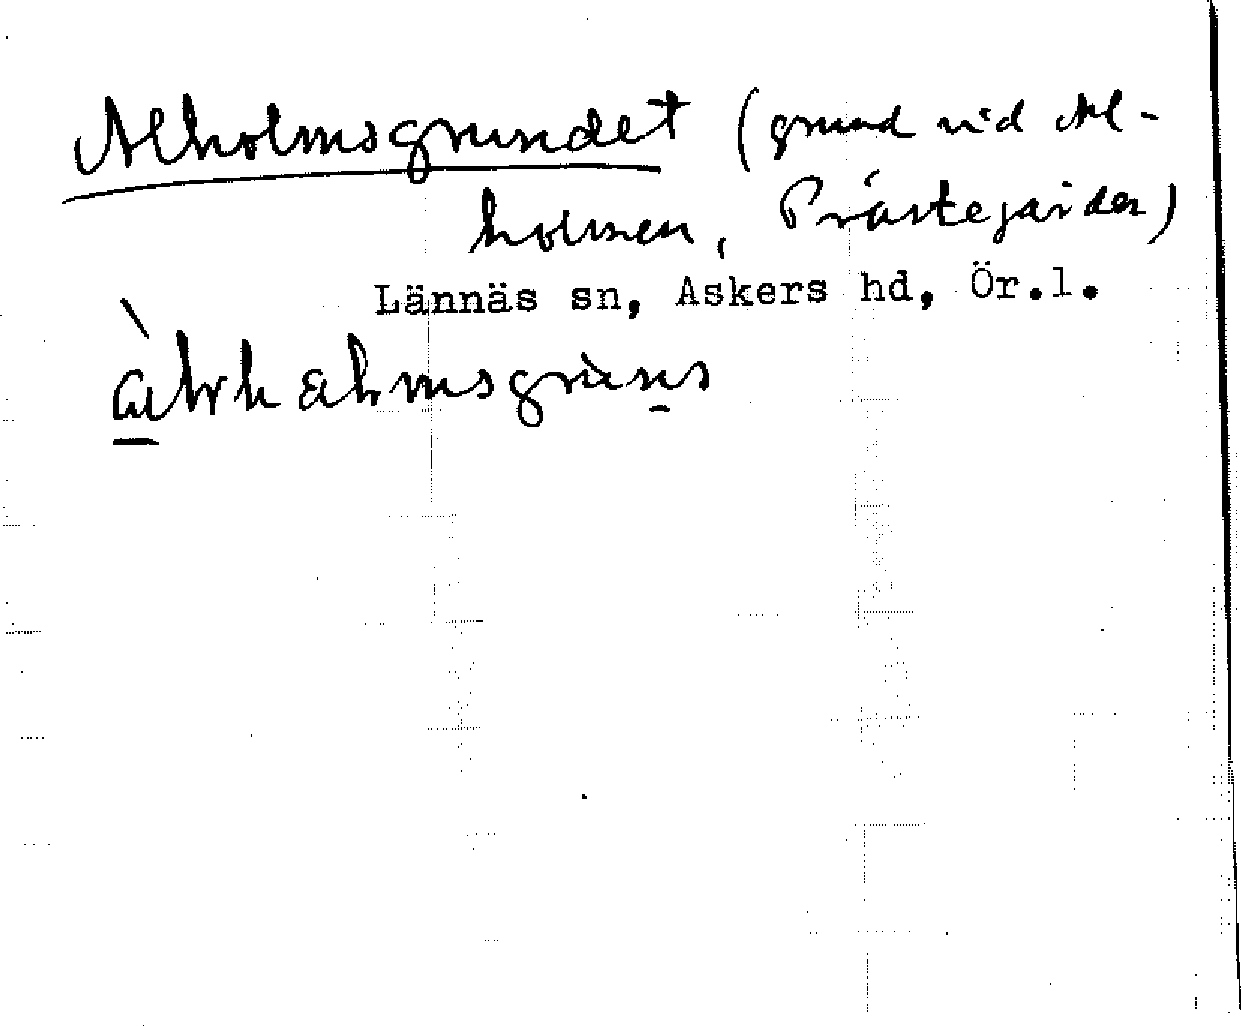 Alholmsgrundet (grund vid Al-
holmen, Prästegården)
Lännäs sn, Askers hd, Ör.l.